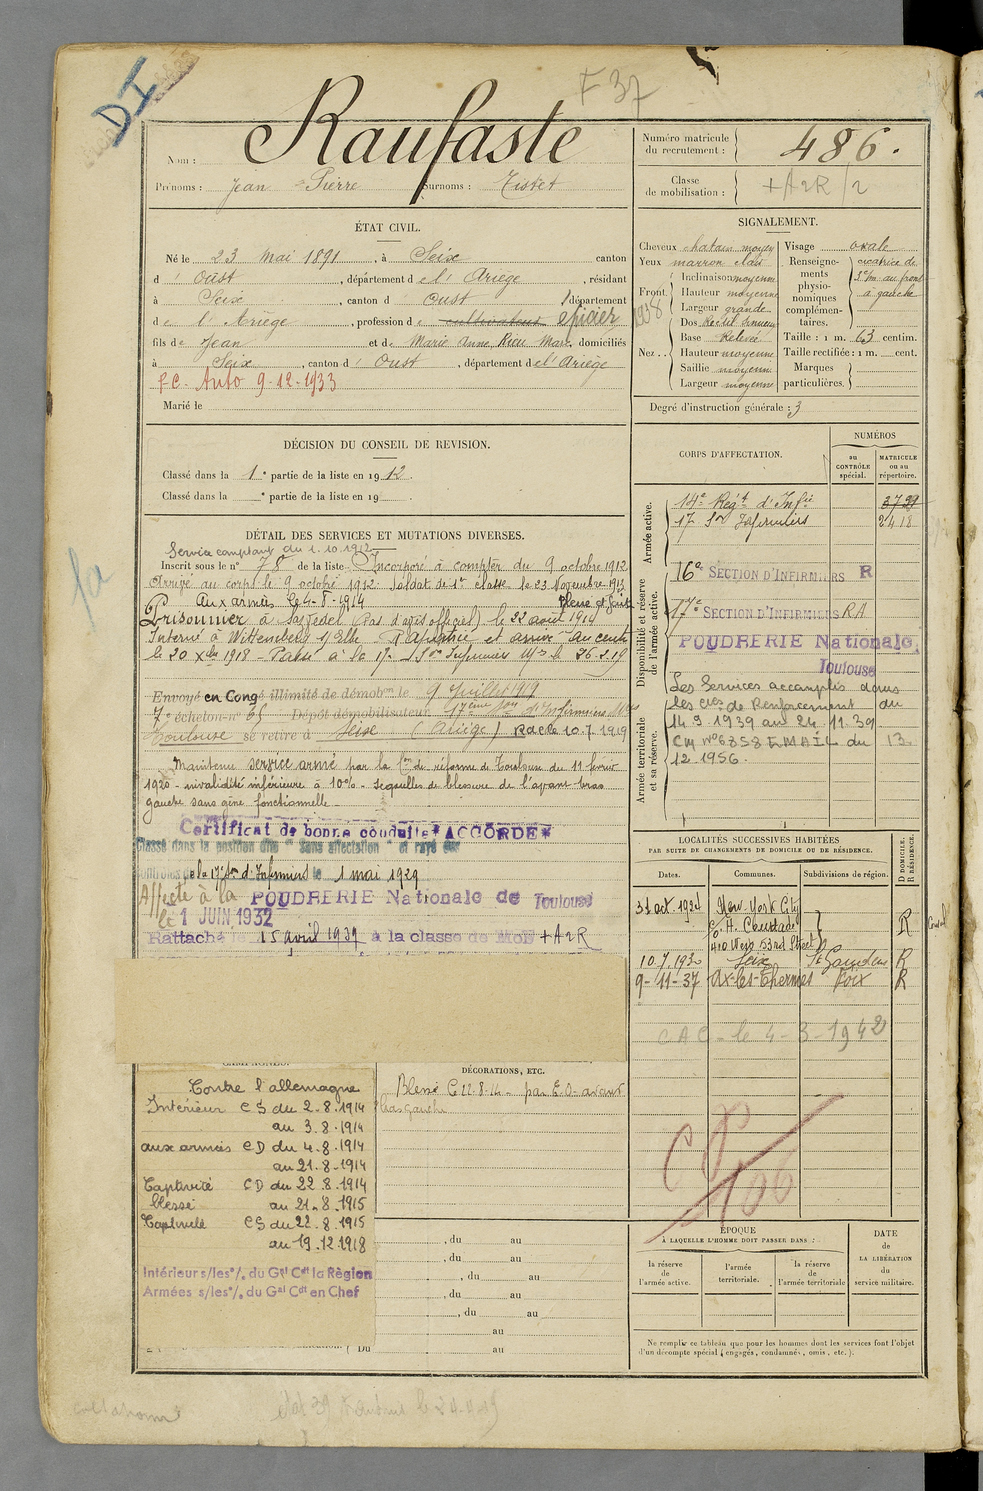 DI
F 37
Nom : Raufaste
Prénoms : Jean - Pierre Surnoms : Tistet
Numéro matricule du recrutement : 486.
Classe de mobilisation : + A2R / 2
ÉTAT CIVIL.
Né le 23 Mai 1891, à Seix canton
d' Oust, département de l'Ariège, résidant
à Seix, canton d' Oust département
de l'Ariège, profession de cultivateur épicier
fils de Jean et de Marie Anne, Rieu Marc, domiciliés
à Seix, canton d' Oust, département de l'Ariège
F.C. Auto 9-12-1933
Marié le
DÉCISION DU CONSEIL DE REVISION.
Classé dans la 1e partie de la liste en 1912.
Classé dans la e partie de la liste en 19 .
DÉTAIL DES SERVICES ET MUTATIONS DIVERSES.
Service comptant du 1.10.1912
Inscrit sous le n° 78 de la liste Incorporé à compter du 9 octobre 1912
Arrivé au corps le 9 octobre 1912. Soldat de 1re classe le 23 Novembre 1913
Aux armées le 4-8-1914
Prisonnier à (Pas d'avis officiel) le 22 août 1914
Interné à Wittemberg s/ Elbe. Rapatrié et arrivé au centre
le 20 Xbre 1918 - Passé à la 17e Son Infirmiers Mres le 26.2.19
Envoyé en Congé illimité de démobon le 9 Juillet 1919
7e échelon n° 65 Dépôt démobilisateur 17ème Son d'Infirmiers Mres
Toulouse se retire à Seix (Ariège) 10.7.1919
Maintenu service armé par la Con de réforme de Toulouse du 11 février
1920 - invalidité inférieure à 10% - séquelles de blessure de l'avant bras
gauche sans gêne fonctionnelle -
Certificat de bonne conduite "ACCORDÉ"
Classé dans la position dite "Sans affectation" et rayé des
contrôles de la 17e Son d'Infirmiers le 1 mai 1929
Affecté à la POUDRERIE Nationale de Toulouse
le 1 JUIN 1932
Rattaché le 15 avril 1937 à la classe de MOB + A2R
CAMPAGNES.
Contre l'allemagne
Intérieur CS du 2-8-1914
au 3.8.1914
aux armées CD du 4.8.1914
au 21-8-1914
Captivité CD du 22.8.1914
blessé au 21.8.1915
Captivité CS du 22.8.1915
au 19.12.1918
Intérieur s/les°/. du Gal Cdt la Région
Armées s/les°/. du Gal Cdt en Chef
DÉCORATIONS, ETC.
Blessé le 22-8-14 - par E.O. avant
bras gauche
, du au
, du au
, du au
, du au
, du au
au
Du au
SIGNALEMENT.
Cheveux chatain moyen
Yeux marron clair
Front. Inclinaison moyenne
Hauteur moyenne
Largeur grande
Nez . Dos Rectil. Sinueux
Base Relevée
Hauteur moyenne
Saillie moyenne
Largeur moyenne
1938
Visage ovale
Renseignements physionomiques complémentaires. cicatrice de
3c/m au front
à gauche
Taille : 1 m. 63 centim.
Taille rectifiée : 1 m. cent.
Marques particulières.
Degré d'instruction générale : 3
CORPS D'AFFECTATION.
NUMÉROS
au CONTRÔLE spécial.
MATRICULE ou au répertoire.
Armée active.
14e Regt d'Infie 3729
17e Son Infirmiers 2418
Disponibilité et réserve de l'armée active.
16e SECTION D'INFIRMIERS R
17e SECTION D'INFIRMIERS RA
POUDRERIE Nationale,
Toulouse
Armée territoriale et sa réserve.
Les Services accomplis dans
les Cies de Renforcement du
14 9 1939 au 24.11.39.
CM N° 6858 EMAIL du 13
12.1956.
LOCALITÉS SUCCESSIVES HABITÉES
PAR SUITE DE CHANGEMENTS DE DOMICILE OU DE RÉSIDENCE.
Dates. Communes. Subdivisions de région. D DOMICILE. R RÉSIDENCE.
31 oct. 1924 New-York City
410 West 53rd Street R
10.7.1930 Seix St Gaudens R
9-11-37 Ax-les-Thermes Foix R
CAC - le 4-3-1942
ÉPOQUE
À LAQUELLE L'HOMME DOIT PASSER DANS :
la réserve de l'armée active.
l'armée territoriale.
la réserve de l'armée territoriale
DATE de LA LIBÉRATION du service militaire.
Ne remplir ce tableau que pour les hommes dont les services font l'objet
d'un décompte spécial (engagés, condamnés, omis, etc.).